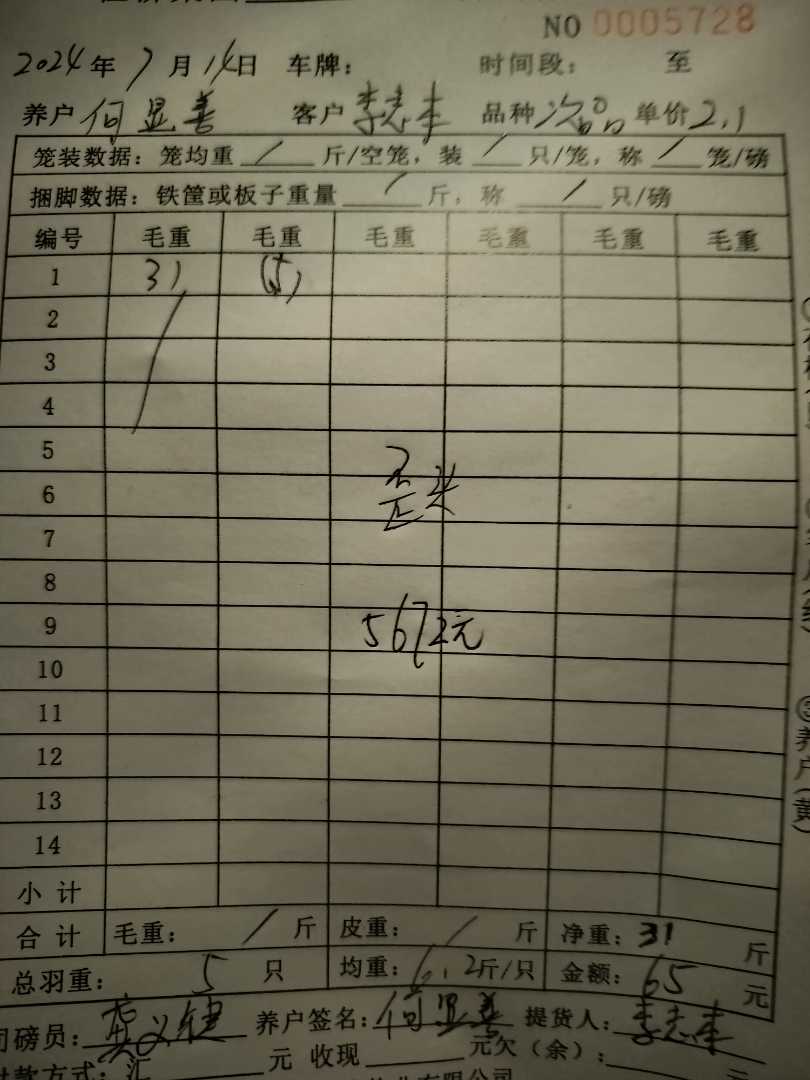 NO 0005728
2024年7月14日 车牌: 时间段: 至
养户何显善 客户李志丰 品种次品 单价2.1
笼装数据: 笼均重 / 斤/空笼, 装 / 只/笼, 称 / 笼/磅
捆脚数据: 铁筐或板子重量 / 斤, 称 / 只/磅
编号 毛重 毛重 毛重 毛重 毛重 毛重
1 31 (5)
2
3
4
5
6 歪头
7
8
9 5672元
10
11
12
13
14
小计
合计 毛重: / 斤 皮重: / 斤 净重: 31 斤
总羽重: 5 只 均重: 6.2斤/只 金额: 65 元
司磅员: 龚义健 养户签名: 何显善 提货人: 李志丰
付款方式: 汇 元 收现 元欠(余): 元
有限公司
③养户(黄)